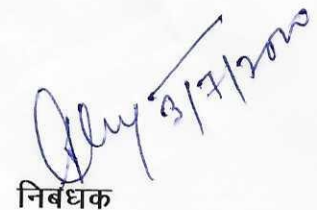 3/7/2020
निबंधक